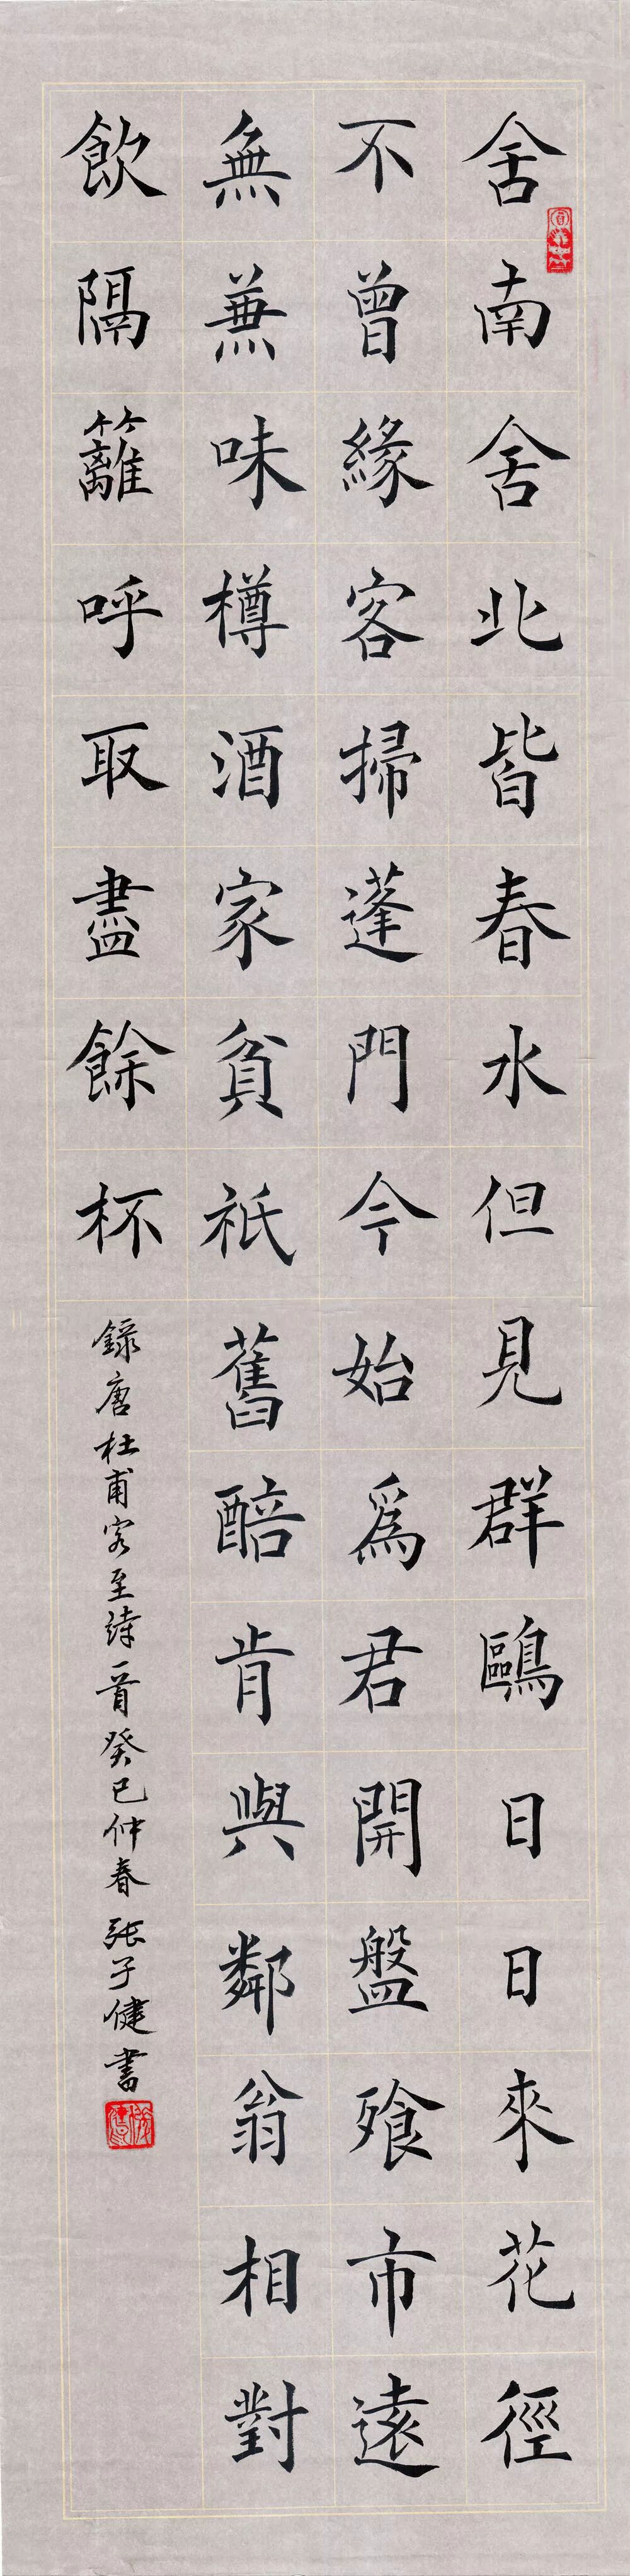 舍南舍北皆春水但見群鷗日日來花徑
不曾緣客掃蓬門今始爲君開盤飧市遠
無蕪味樽酒家貧祇舊醅肯與鄰翁相對
飲隔籬呼取盡餘杯
錄唐杜甫客至詩一首癸巳仲春張子健書